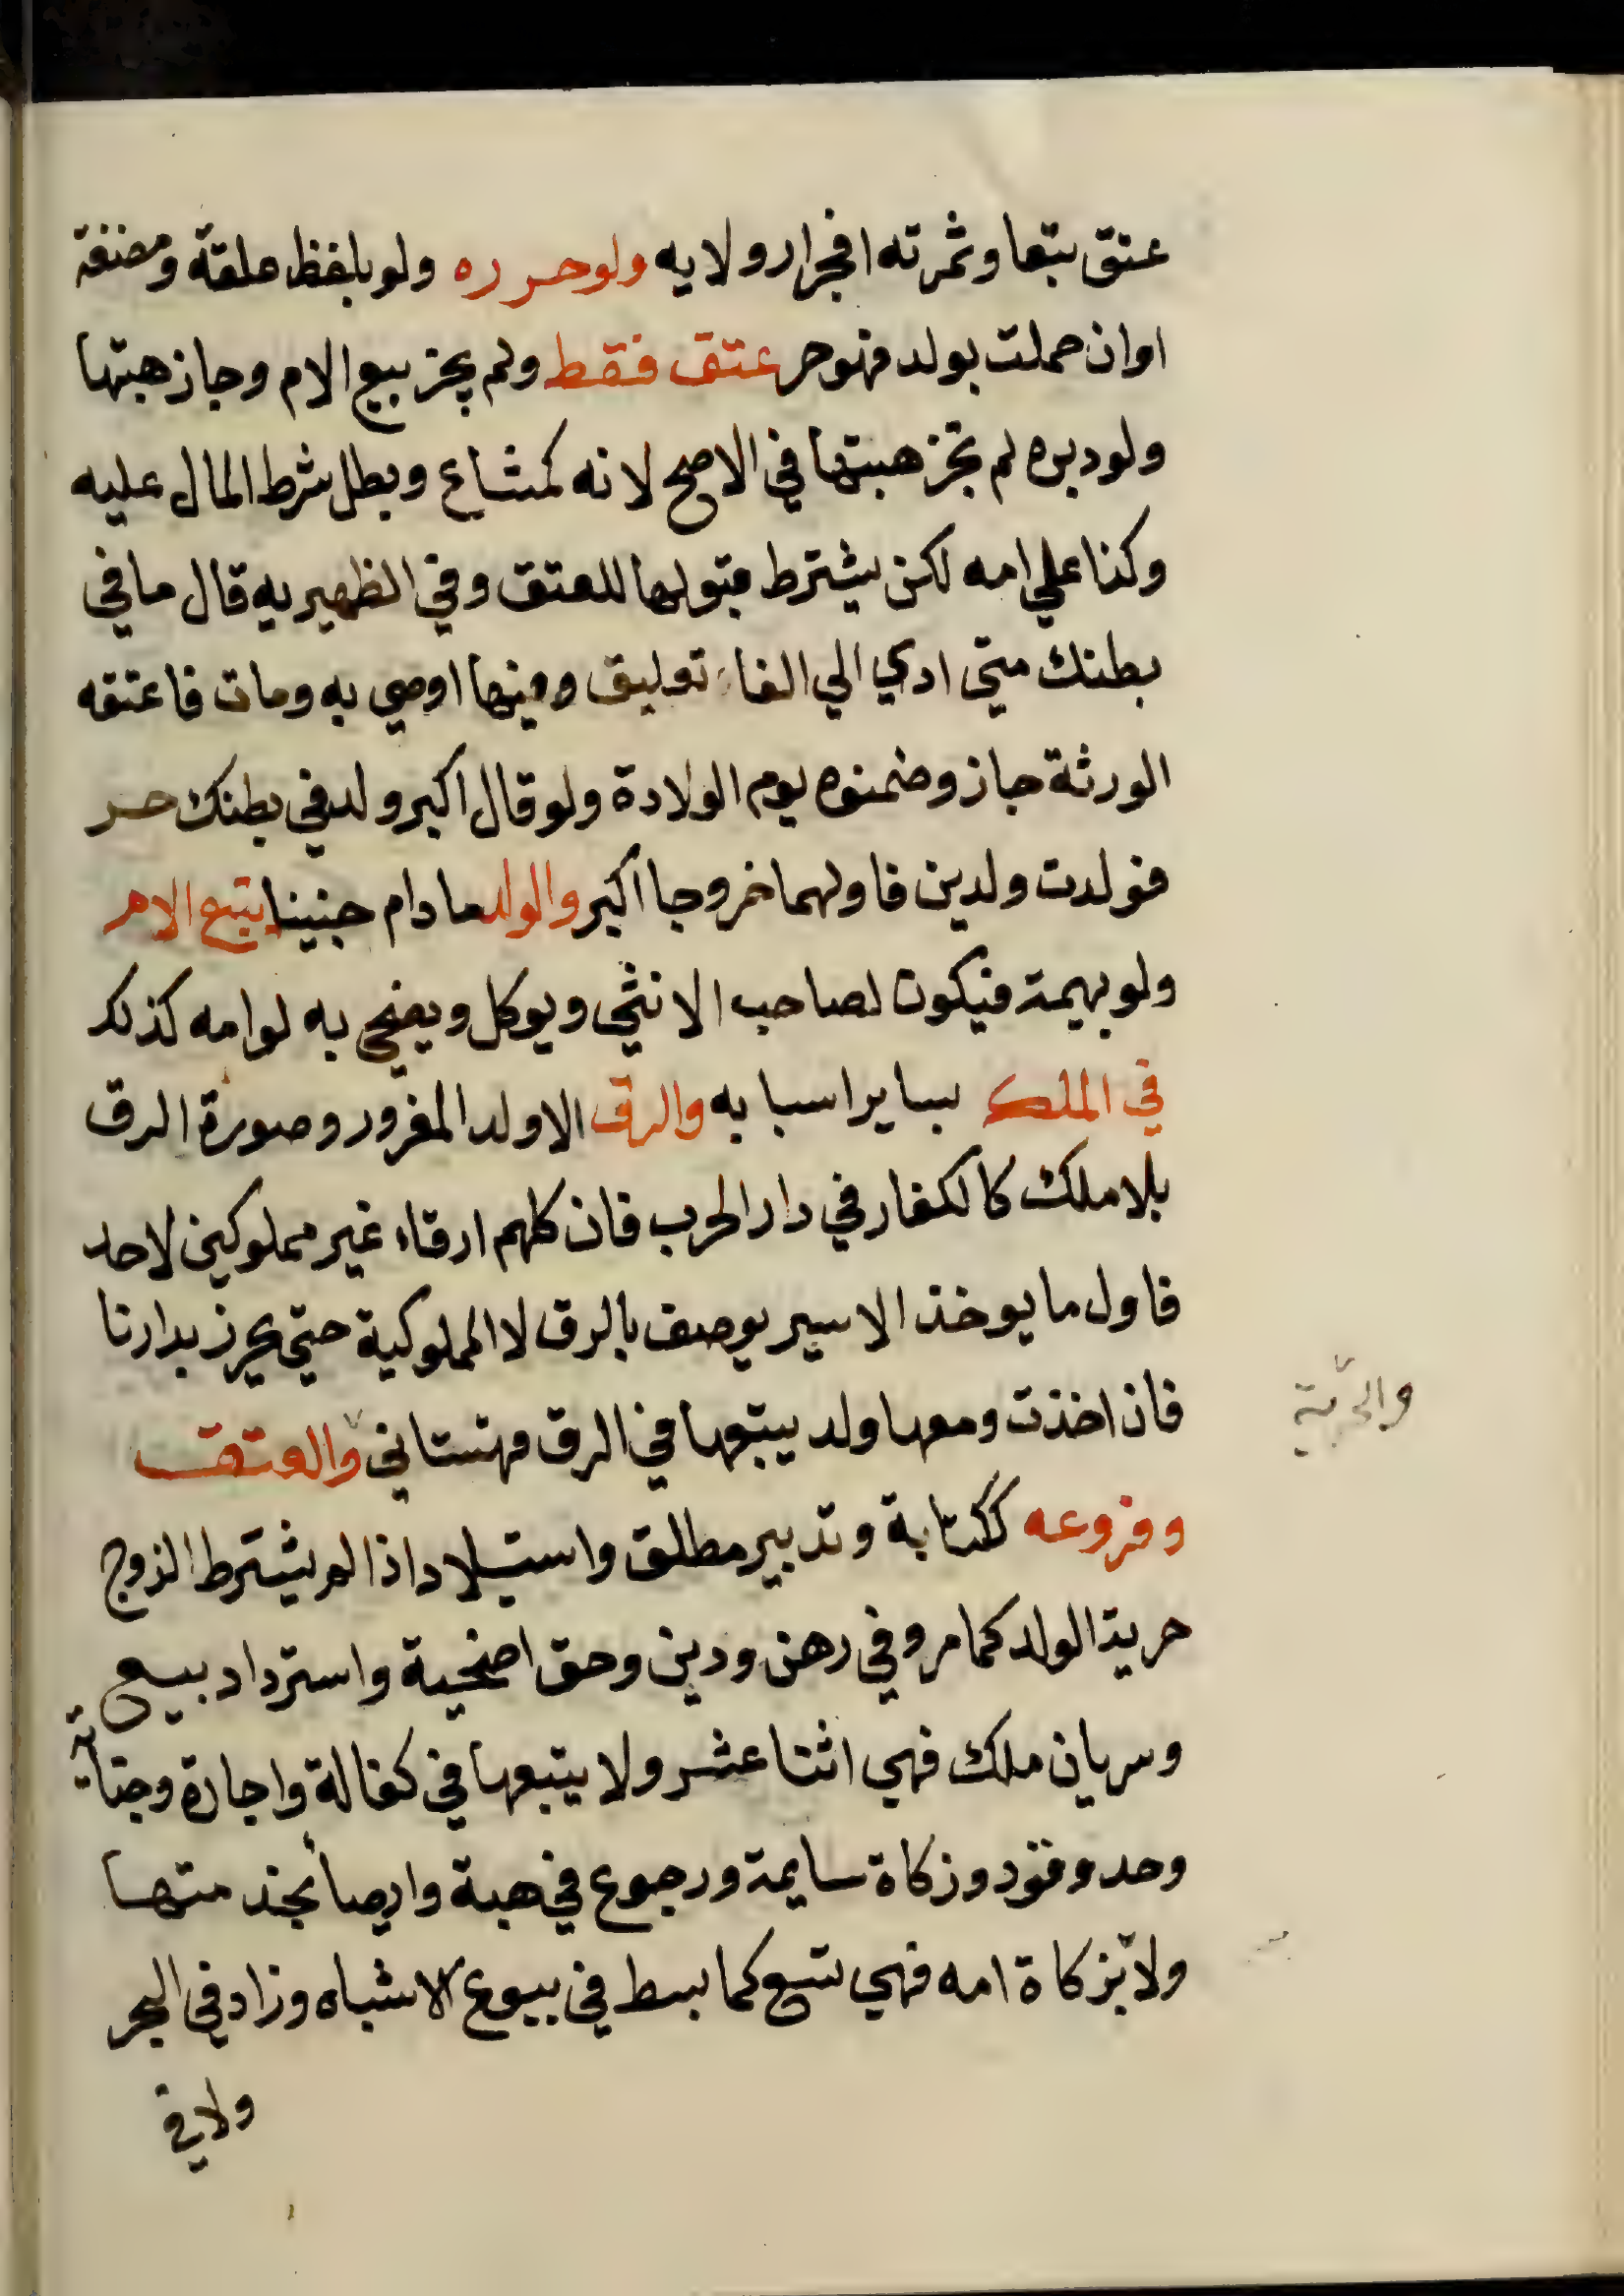 عتق تبعا وثمرته انجرار ولايه ولو حرره ولو بلفظ علقة ومضغة
او ان حملت بولد فهو حر عتق فقط ولم يجز بيع الام وجاز هبتها
ولو دبره لم تجز هبتها في الاصح لانه كمشاع وبطل شرط المال عليه
وكذا علي امه لكن يشترط قبولها للعتق وفي الظهيريه قال ما في
بطنك متي ادي الي الفاء تعليق وفيها اوصي به ومات فاعتقه
الورثة جاز وضمنوه يوم الولادة ولو قال اكبر ولد في بطنك حر
فولدت ولدين فاولهما خروجا اكبر والولد ما دام جنينا يتبع الام
ولو بهيمة فيكون لصاحب الانثي ويوكل ويضحي به لو امه كذلك
في الملك بساير اسبابه والرق الا ولد المغرور وصورة الرق
بلا ملك كالكفار في دار الحرب فان كلهم ارقاء غير مملوكين لاحد
فاول ما يوخذ الاسير يوصف بالرق لا المملوكية حتي يحرز بدارنا
فان اخذت ومعها ولد يتبعها في الرق قهستاني والعتق
والحرية
وفروعه ككتابة وتدبير مطلق واستيلاد اذا لم يشترط الزوج
حرية الولد كما مر وفي رهن ودين وحق اضحية واسترداد بيع
وسريان ملك فهي اثنا عشر ولا يتبعها في كفالة واجارة وجناية
وحد وقود وزكاة سايمة ورجوع في هبة وايصا بخدمتها
ولا بزكاة امه فهي تسع كما بسط في بيوع الاشباه وزاد في البحر
ولا في